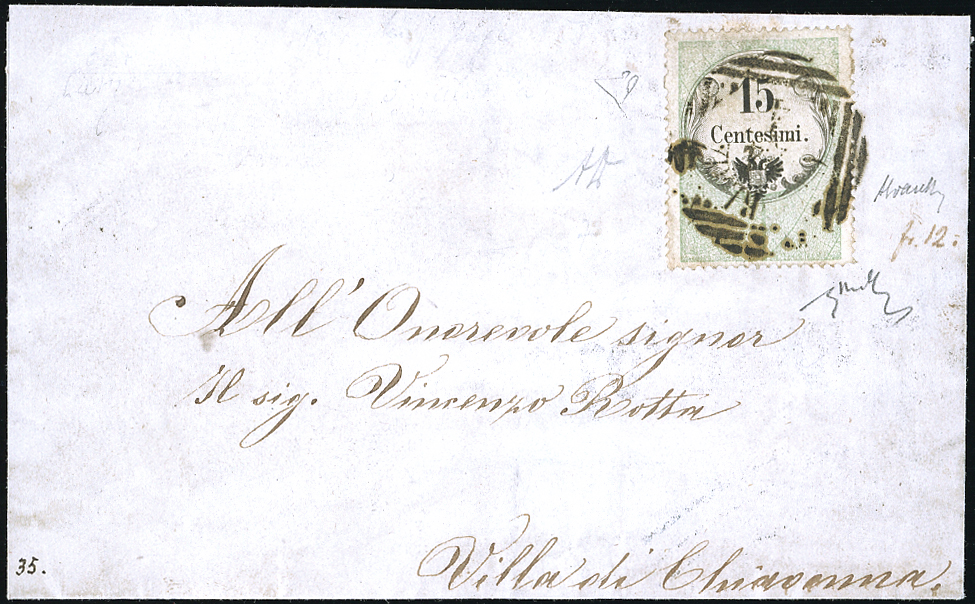 15
Centesimi.
fr. 12.
All' Onorevole signor
Il sig. Vincenzo Rotta
Villa di Chiavenna.
35.